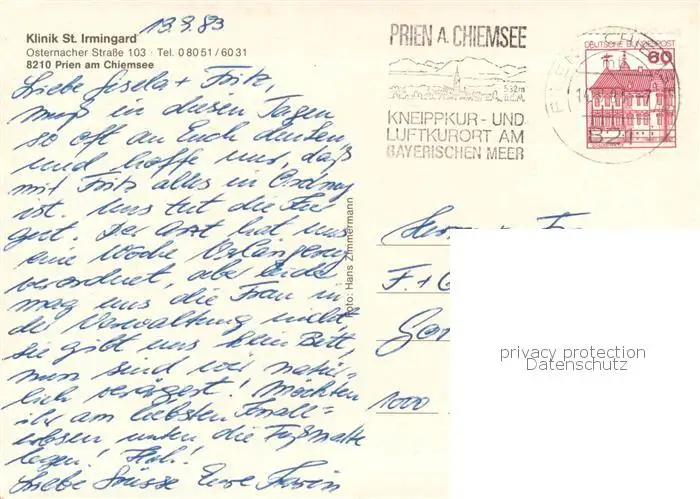 13.9.83
Klinik St. Irmingard
Osternacher Straße 103 · Tel. 0 80 51 / 60 31
8210 Prien am Chiemsee
Liebe Gisela + Fritz,
muß in diesen Tagen
so oft an Euch denken
und hoffe nur, daß
mit Fritz alles in Ordnung
ist. Uns tut die Kur
gut. Der Arzt hat uns
eine Woche Verlängerung
verordnet, aber
mag uns die Frau in
der Verwaltung nicht,
sie gibt uns kein Bett,
nun sind wir natür-
lich verärgert! Möchten
ihr am liebsten Knall-
erbsen unter die Fußmatte
legen!
Liebe Grüsse Eure Karin
Foto: Hans Zimmermann
PRIEN A. CHIEMSEE
532m
KNEIPPKUR - UND
LUFTKURORT AM
BAYERISCHEN MEER
DEUTSCHE BUNDESPOST
60
821
F. + G
1000
privacy protection
Datenschutz